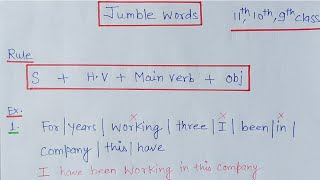 Jumble Words
11th, 10th, 9th class
Rule
S + H.V + Main verb + obj
Ex.
1. For | years | working | three | I | been | in |
company | this | have
I have been working in this company